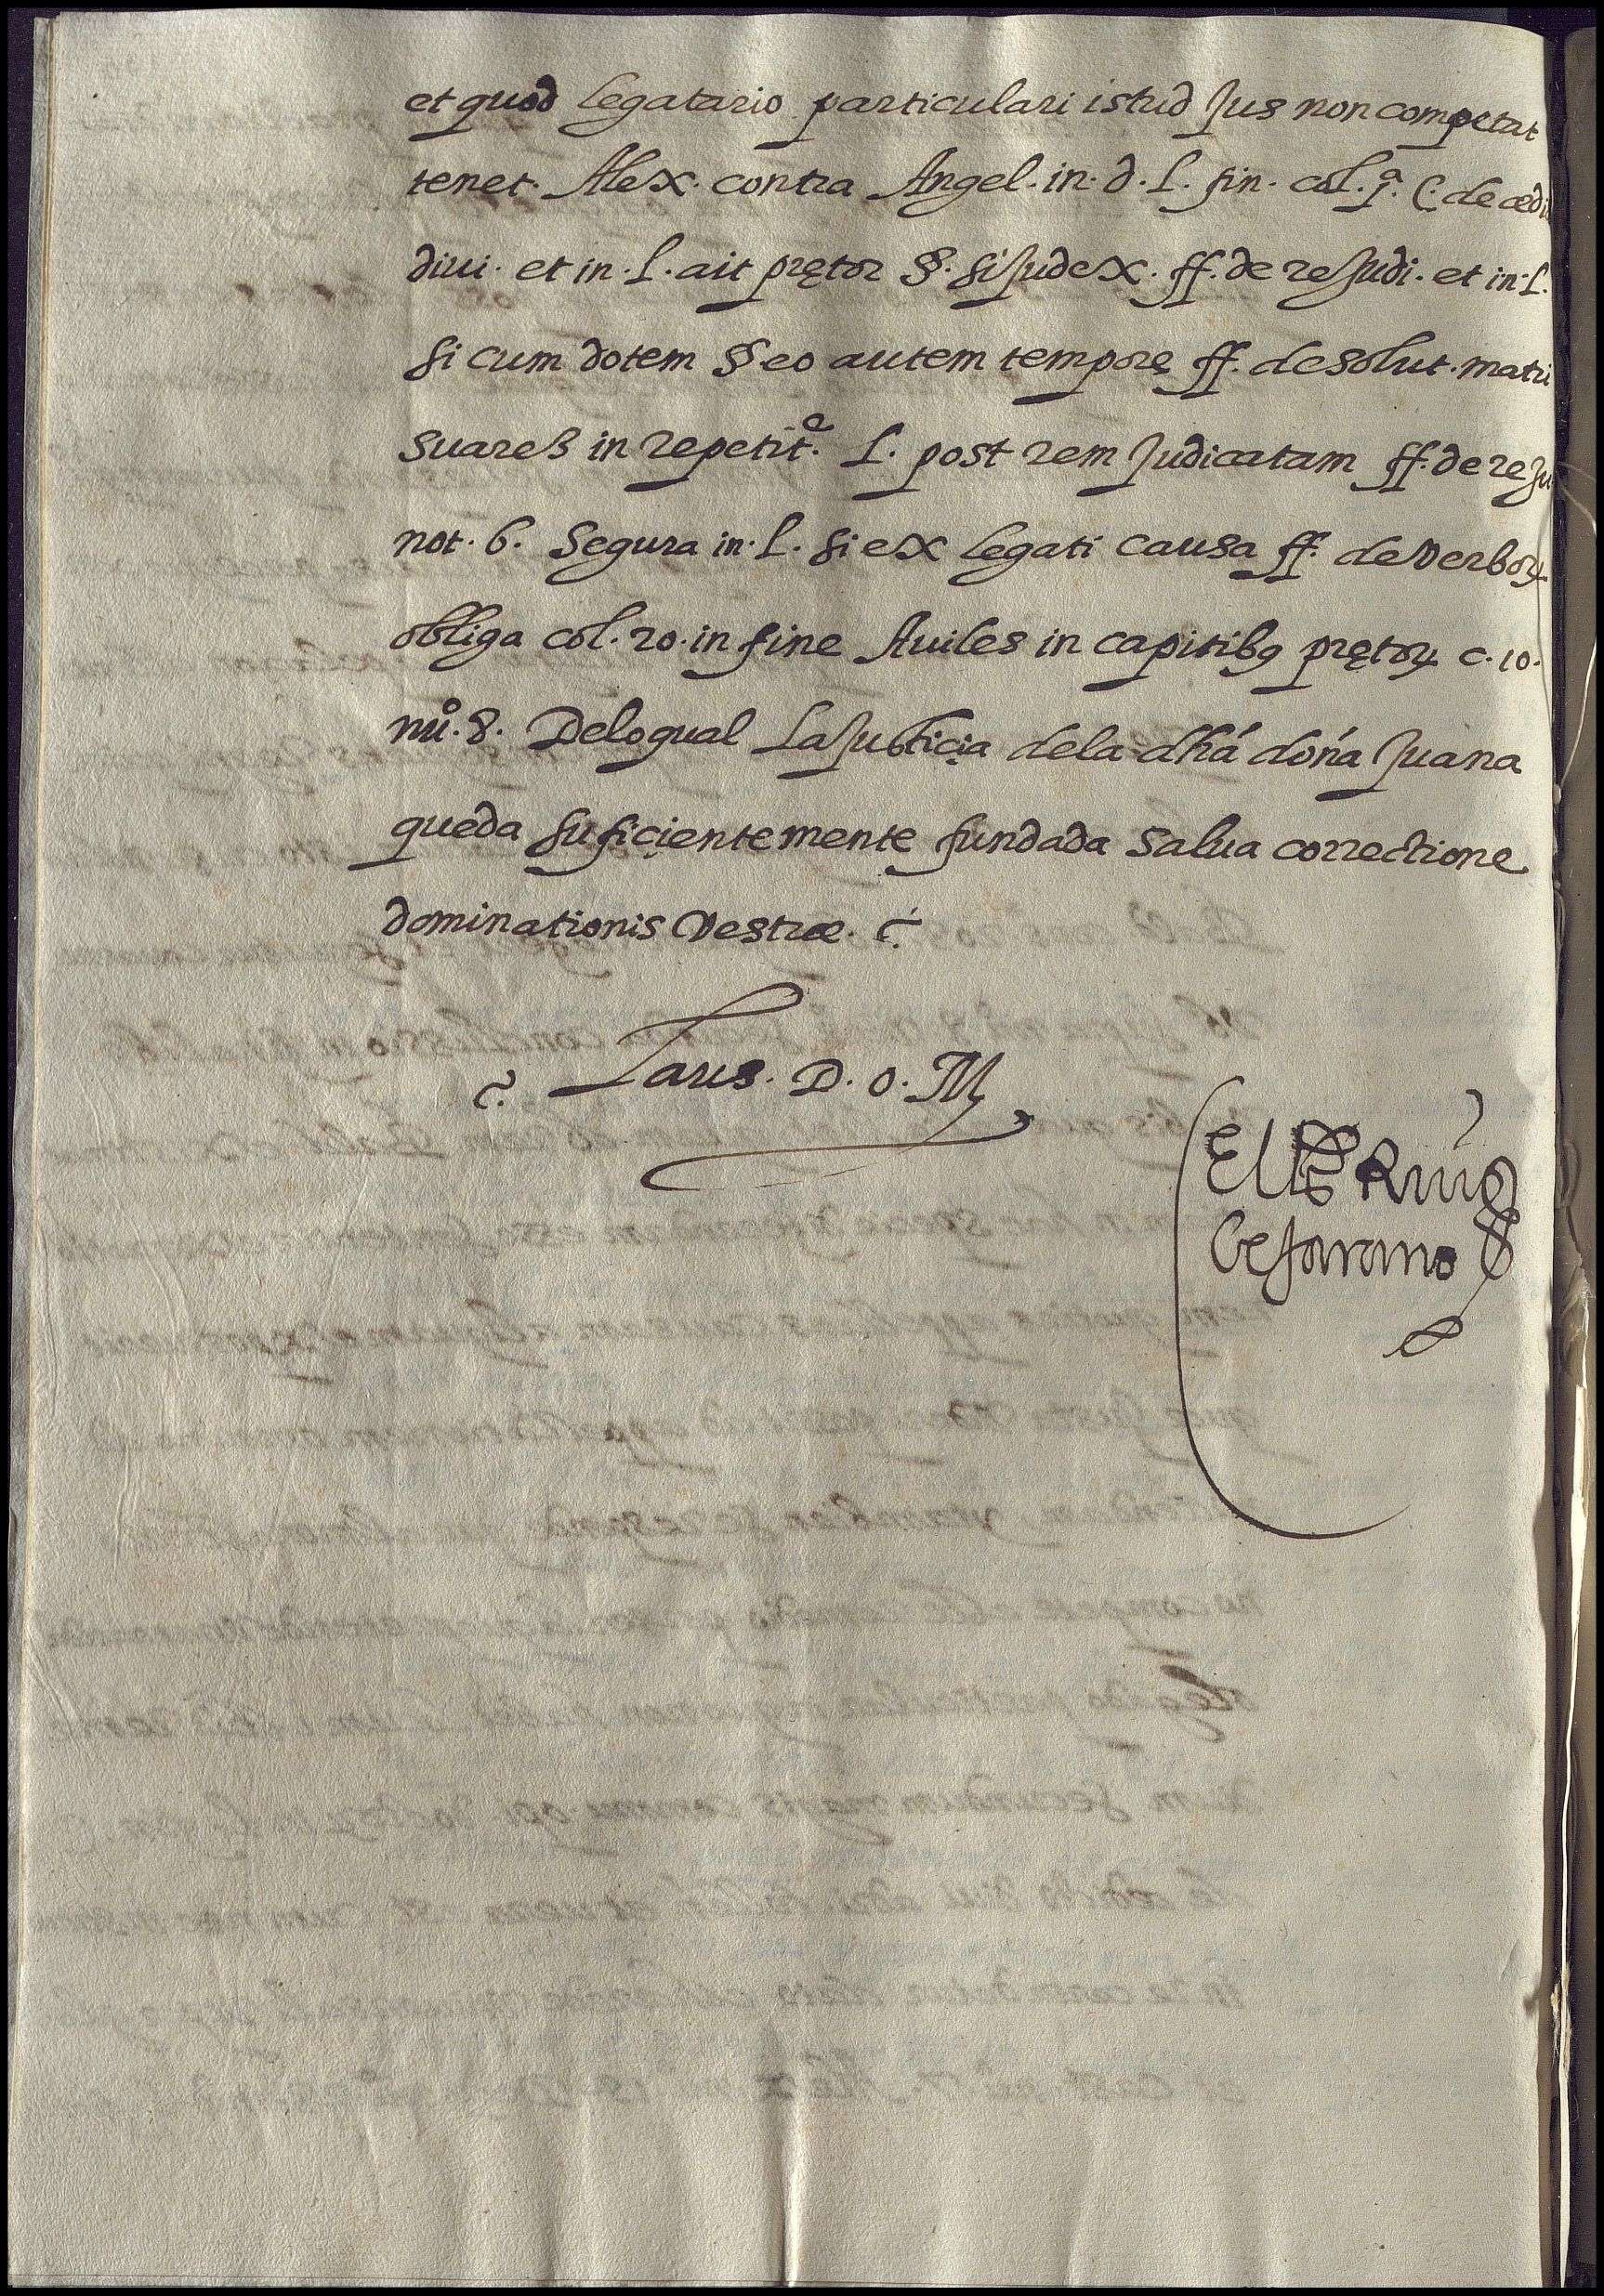 et quod legatario particulari istud Jus non competat
tenet. Alex. contra Angel. in. d. l. fin. col. 1.ª C. de ædi
diui. et in. l. ait prętor §. si Judex. ff. de re Judi. et in. l.
si cum dotem § eo autem temporę ff. de solut. matri
Suares in repetit.e l. post rem Judicatam ff. de re Ju
not. 6. Segura in. l. si ex legati causa ff. de verborꝝ
obliga col. 20. in fine Auiles in capitibꝰ prętorꝝ c. 10.
nuº. 8. Delo qual la Justiçia dela dhá doña Juana
queda sufiçientementę fundada salua correctione
dominationis Vestræ.
Laus. D. O. M
El
Cejarano